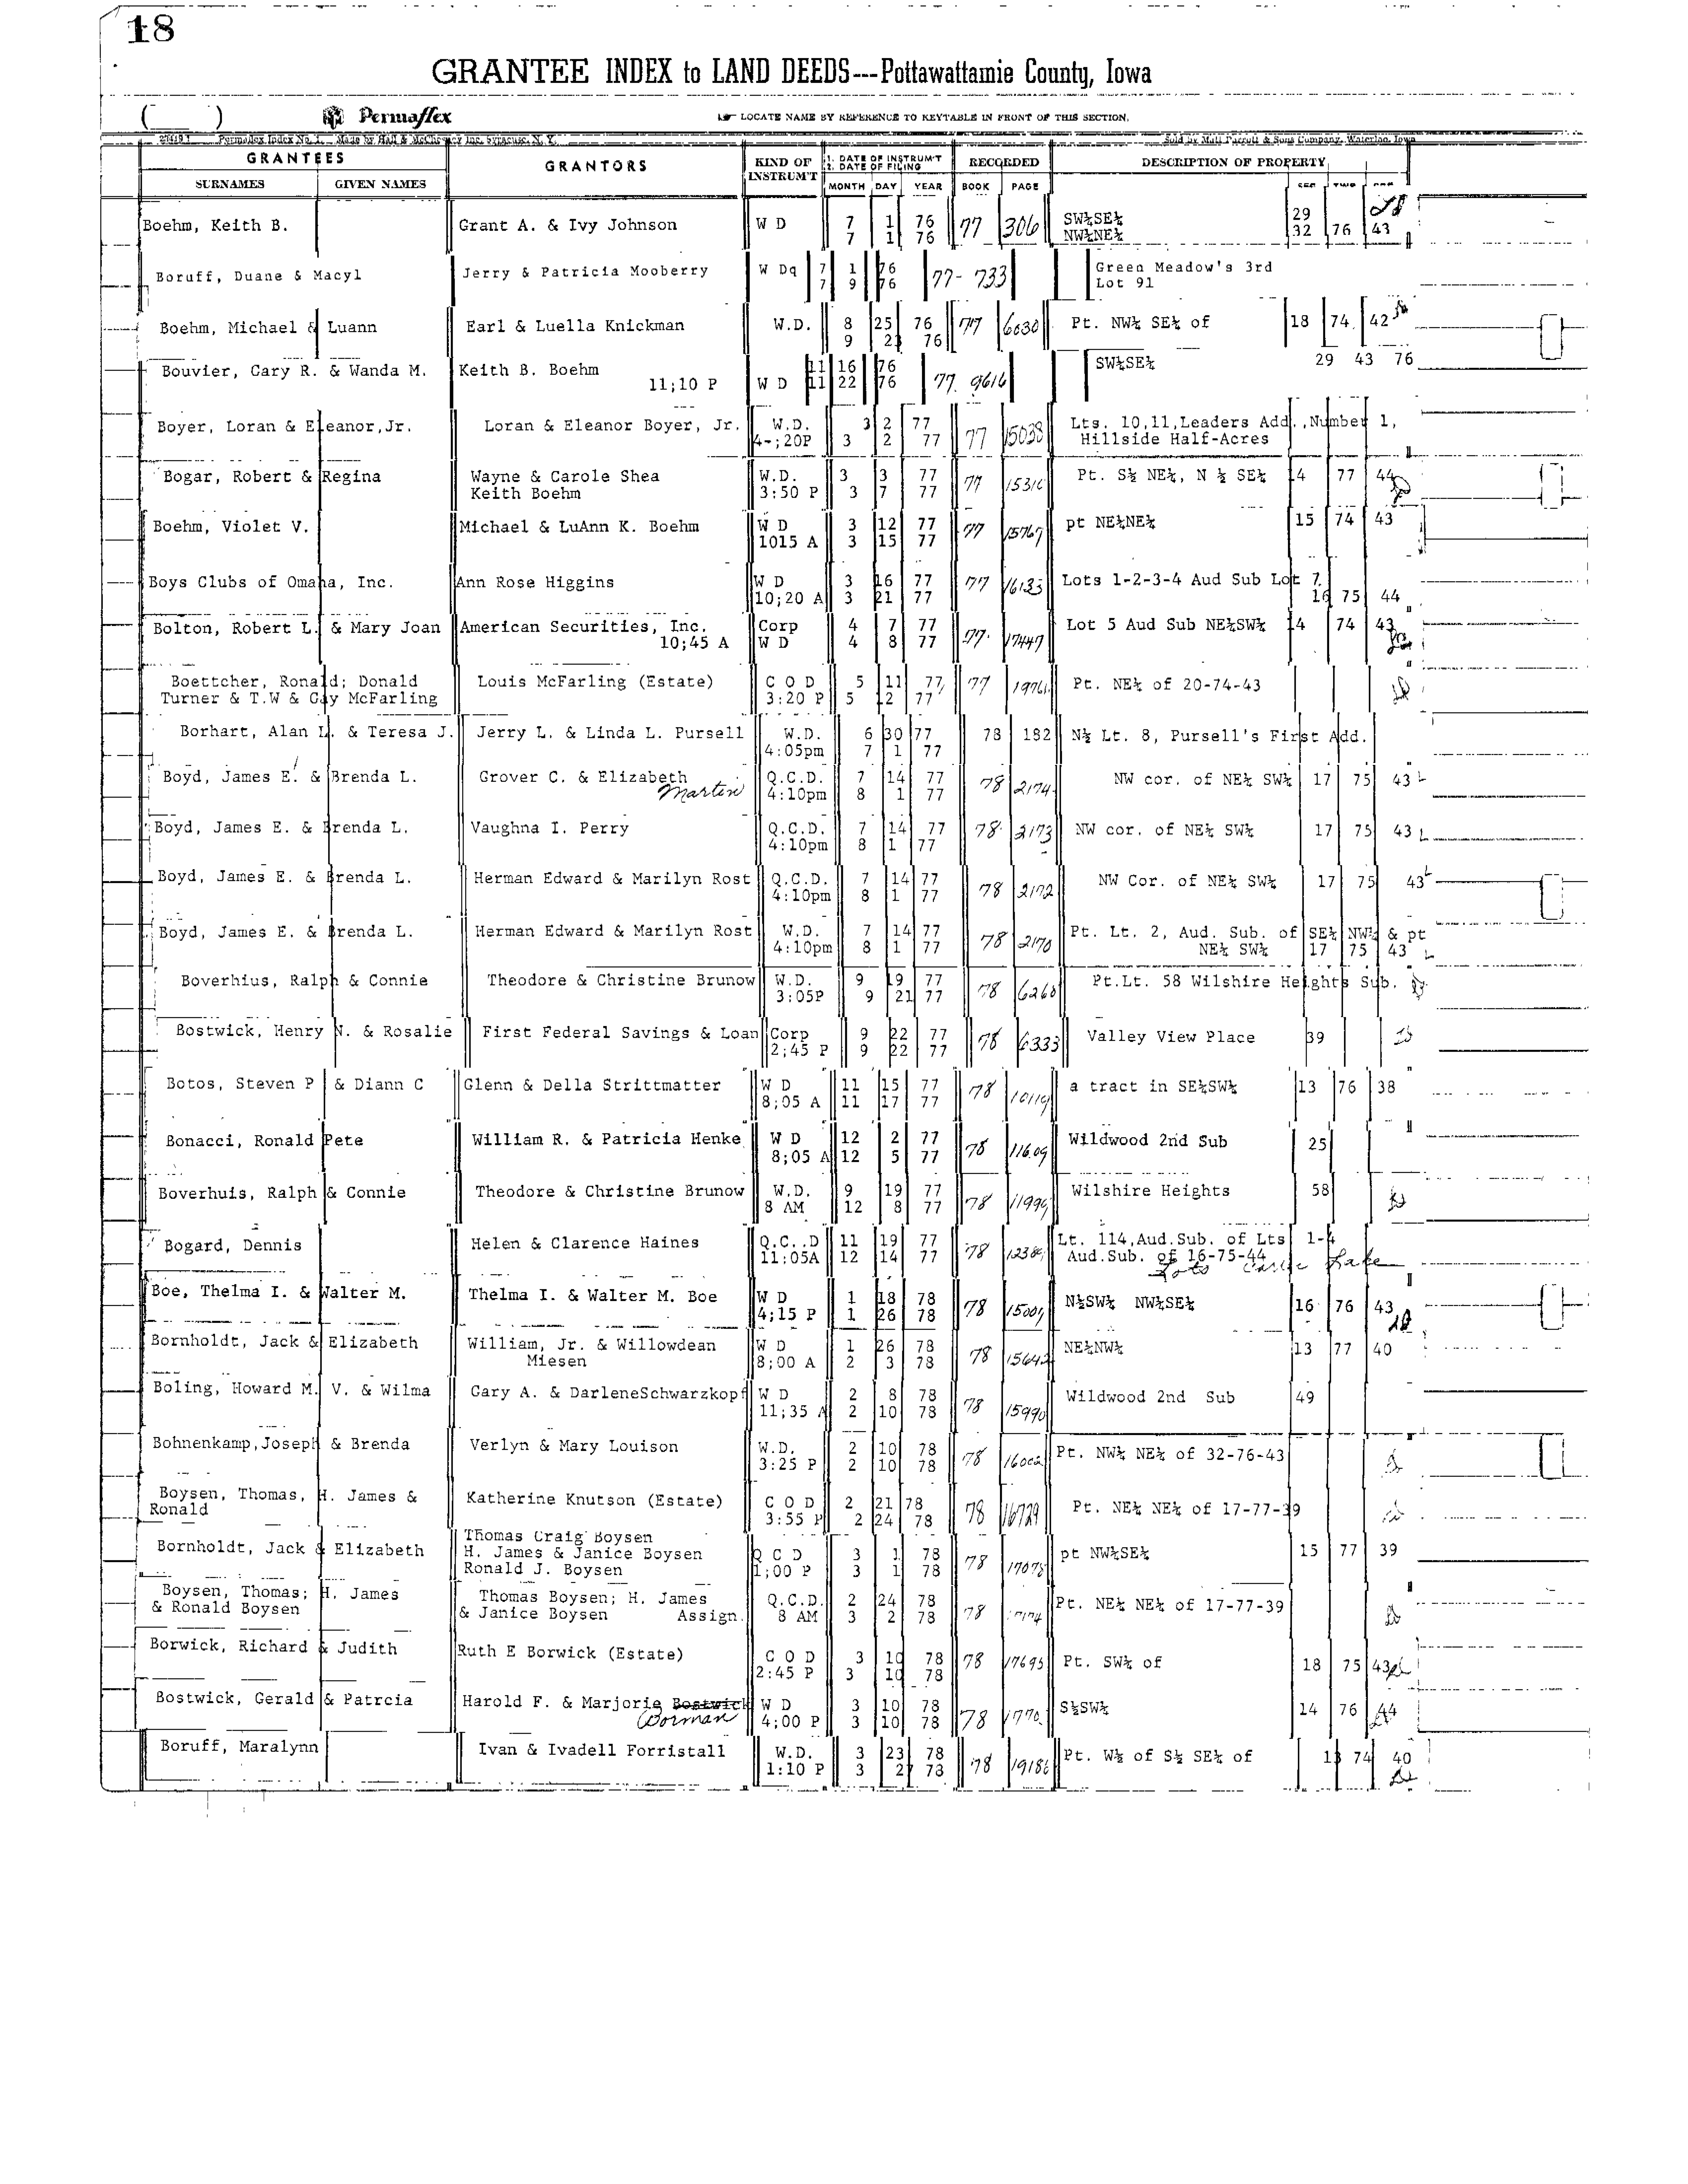 18
GRANTEE INDEX to LAND DEEDS---Pottawattamie County, Iowa
( ) Permaflex LOCATE NAME BY REFERENCE TO KEYTABLE IN FRONT OF THIS SECTION.
Permaflex Index No. 1. Made by Hall & McChesney Inc. Syracuse, N. Y. Sold by Matt Parrott & Sons Company, Waterloo, Iowa
GRANTEES GRANTORS KIND OF INSTRUM'T 1. DATE OF INSTRUM'T 2. DATE OF FILING RECORDED DESCRIPTION OF PROPERTY
SURNAMES GIVEN NAMES MONTH DAY YEAR BOOK PAGE SEC TWP RGE
Boehm, Keith B. Grant A. & Ivy Johnson W D 7 1 76 77 306 SW¼SE¼ 29
7 1 76 NW¼NE¼ 32 76 43
Boruff, Duane & Macyl Jerry & Patricia Mooberry W Dq 7 1 76 77- 733 Green Meadow's 3rd
7 9 76 Lot 91
Boehm, Michael & Luann Earl & Luella Knickman W.D. 8 25 76 77 6030 Pt. NW¼ SE¼ of 18 74 42
9 23 76
Bouvier, Gary R. & Wanda M. Keith B. Boehm 11 16 76 77 9616 SW¼SE¼ 29 43 76
11;10 P W D 11 22 76
Boyer, Loran & Eleanor,Jr. Loran & Eleanor Boyer, Jr. W.D. 3 2 77 77 15038 Lts. 10,11,Leaders Add.,Number 1,
4-;20P 3 2 77 Hillside Half-Acres
Bogar, Robert & Regina Wayne & Carole Shea W.D. 3 3 77 77 15310 Pt. S½ NE¼, N ½ SE¼ 4 77 44
Keith Boehm 3:50 P 3 7 77
Boehm, Violet V. Michael & LuAnn K. Boehm W D 3 12 77 77 15767 pt NE¼NE¼ 15 74 43
1015 A 3 15 77
Boys Clubs of Omaha, Inc. Ann Rose Higgins W D 3 16 77 77 16133 Lots 1-2-3-4 Aud Sub Lot 7,
10;20 A 3 21 77 16 75 44
Bolton, Robert L. & Mary Joan American Securities, Inc. Corp 4 7 77 77 17447 Lot 5 Aud Sub NE¼SW¼ 14 74 43
10;45 A W D 4 8 77
Boettcher, Ronald; Donald Louis McFarling (Estate) C O D 5 11 77 77 Pt. NE¼ of 20-74-43
Turner & T.W & Gay McFarling 3:20 P 5 12 77
Borhart, Alan L. & Teresa J. Jerry L. & Linda L. Pursell W.D. 6 30 77 78 182 N½ Lt. 8, Pursell's First Add.
4:05pm 7 1 77
Boyd, James E. & Brenda L. Grover C. & Elizabeth Q.C.D. 7 14 77 78 2174 NW cor. of NE¼ SW¼ 17 75 43
Martin 4:10pm 8 1 77
Boyd, James E. & Brenda L. Vaughna I. Perry Q.C.D. 7 14 77 78 2173 NW cor. of NE¼ SW¼ 17 75 43
4:10pm 8 1 77
Boyd, James E. & Brenda L. Herman Edward & Marilyn Rost Q.C.D. 7 14 77 78 2172 NW Cor. of NE¼ SW¼ 17 75 43
4:10pm 8 1 77
Boyd, James E. & Brenda L. Herman Edward & Marilyn Rost W.D. 7 14 77 78 2170 Pt. Lt. 2, Aud. Sub. of SE¼ NW¼ & pt
4:10pm 8 1 77 NE¼ SW¼ 17 75 43
Boverhius, Ralph & Connie Theodore & Christine Brunow W.D. 9 19 77 78 6268 Pt.Lt. 58 Wilshire Heights Sub.
3:05P 9 21 77
Bostwick, Henry N. & Rosalie First Federal Savings & Loan Corp 9 22 77 78 6333 Valley View Place 39
2;45 P 9 22 77
Botos, Steven P & Diann C Glenn & Della Strittmatter W D 11 15 77 78 10119 a tract in SE¼SW¼ 13 76 38
8;05 A 11 17 77
Bonacci, Ronald Pete William R. & Patricia Henke W D 12 2 77 78 11609 Wildwood 2nd Sub 25
8;05 A 12 5 77
Boverhuis, Ralph & Connie Theodore & Christine Brunow W.D. 9 19 77 78 Wilshire Heights 58
8 AM 12 8 77
Bogard, Dennis Helen & Clarence Haines Q.C..D 11 19 77 78 Lt. 114,Aud.Sub. of Lts 1-4
11:05A 12 14 77 Aud.Sub. of 16-75-44
Lots Carter Lake
Boe, Thelma I. & Walter M. Thelma I. & Walter M. Boe W D 1 18 78 78 15009 N½SW¼ NW¼SE¼ 16 76 43
4;15 P 1 26 78
Bornholdt, Jack & Elizabeth William, Jr. & Willowdean W D 1 26 78 78 15642 NE¼NW¼ 13 77 40
Miesen 8;00 A 2 3 78
Boling, Howard M. V. & Wilma Gary A. & DarleneSchwarzkopf W D 2 8 78 78 15990 Wildwood 2nd Sub 49
11;35 A 2 10 78
Bohnenkamp,Joseph & Brenda Verlyn & Mary Louison W.D. 2 10 78 78 16002 Pt. NW¼ NE¼ of 32-76-43
3:25 P 2 10 78
Boysen, Thomas, H. James & Katherine Knutson (Estate) C O D 2 21 78 78 16729 Pt. NE¼ NE¼ of 17-77-39
Ronald 3:55 P 2 24 78
Thomas Craig Boysen
Bornholdt, Jack & Elizabeth H. James & Janice Boysen Q C D 3 1 78 78 17078 pt NW¼SE¼ 15 77 39
Ronald J. Boysen 1;00 P 3 1 78
Boysen, Thomas; H. James Thomas Boysen; H. James Q.C.D. 2 24 78 78 Pt. NE¼ NE¼ of 17-77-39
& Ronald Boysen & Janice Boysen Assign. 8 AM 3 2 78
Borwick, Richard & Judith Ruth E Borwick (Estate) C O D 3 10 78 78 17695 Pt. SW¼ of 18 75 43
2:45 P 3 10 78
Bostwick, Gerald & Patrcia Harold F. & Marjorie Bostwick W D 3 10 78 78 S½SW¼ 14 76 44
Dorman 4;00 P 3 10 78
Boruff, Maralynn Ivan & Ivadell Forristall W.D. 3 23 78 78 19186 Pt. W½ of S½ SE¼ of 13 74 40
1:10 P 3 27 78